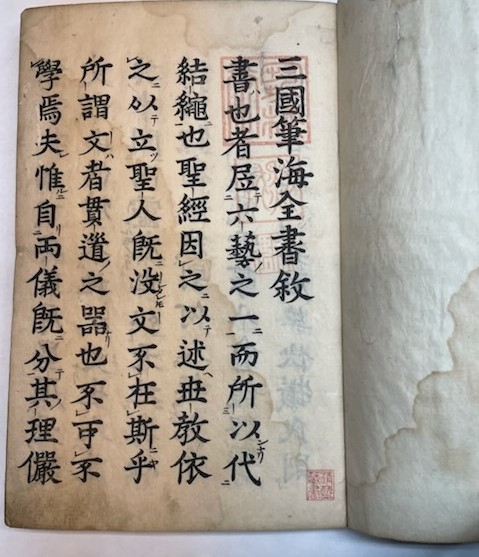 三國筆海全書敘
書也者居六藝之一而所以代
結繩也聖經因之以述世教依
之以立聖人既没文不在斯乎
所謂文者貫道之器也不可不
學焉夫惟自兩儀既分其理儼